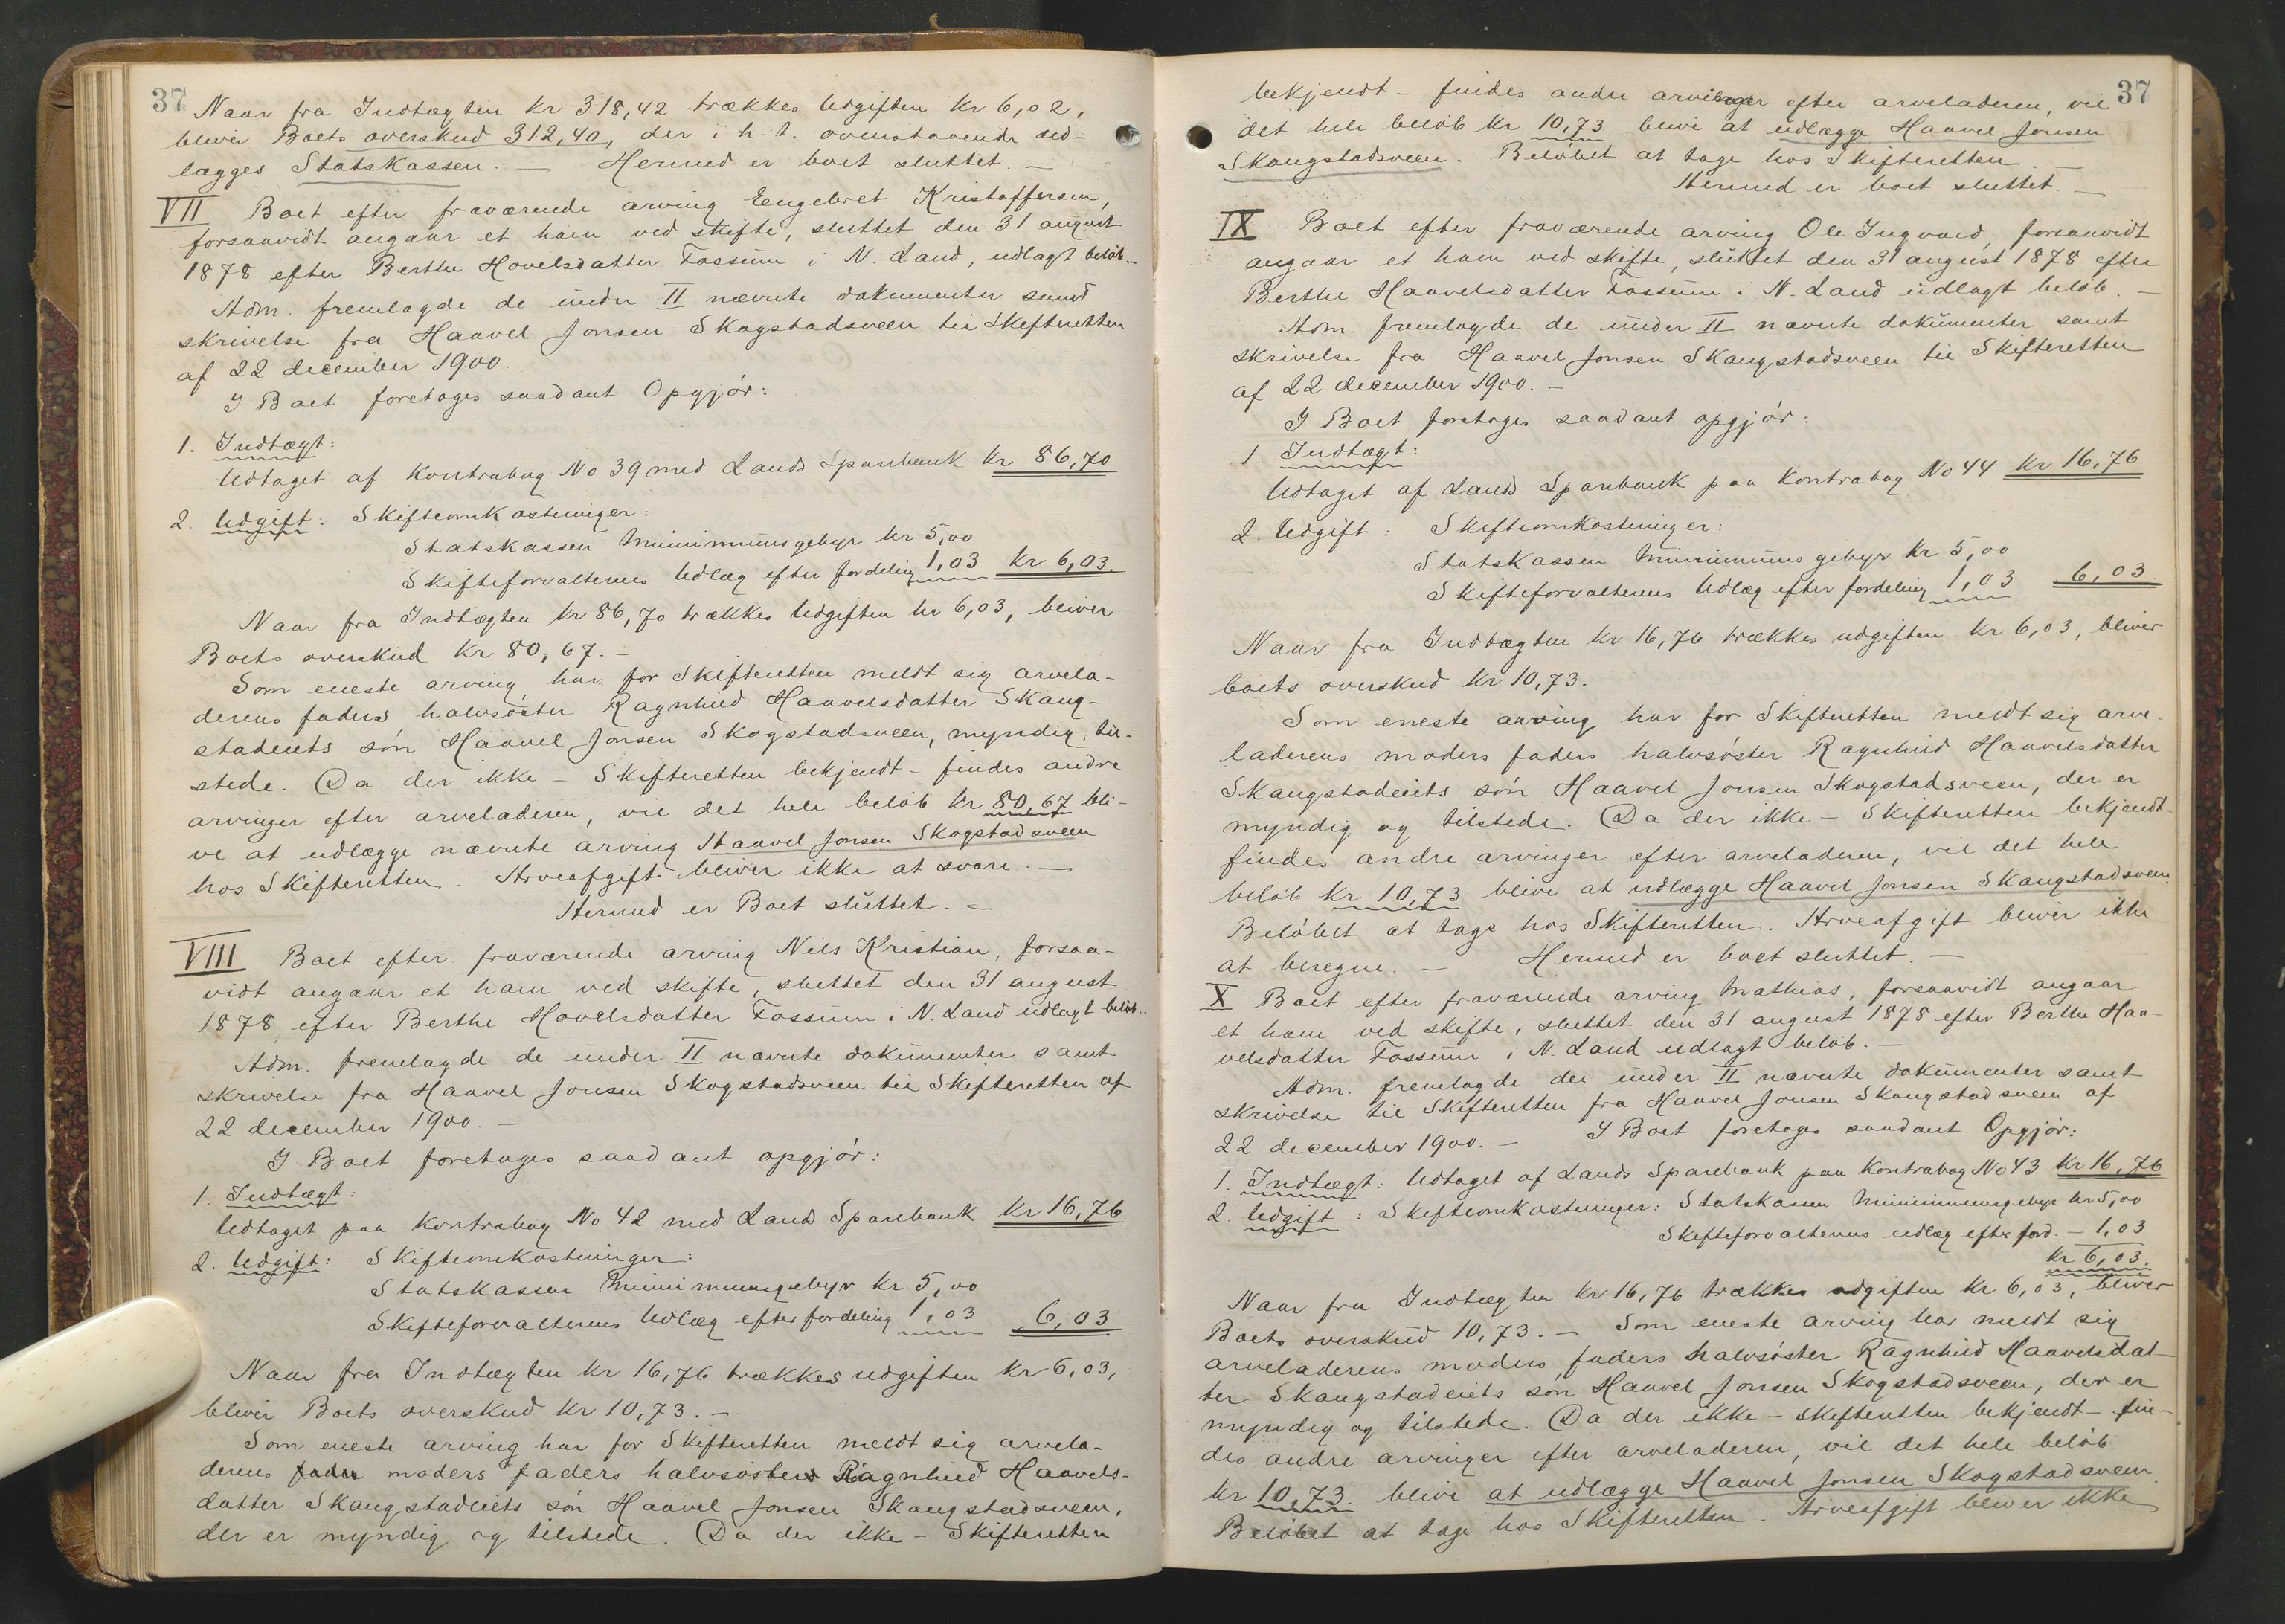 37
Naar fra Indtægten kr 318,42 trækkes Udgiften kr 6,02,
bliver Boets overskud 312,40, der i h. t. ovenstaaende ud-
lægges Statskassen. — Hermed er boet sluttet. —
VII Boet efter fraværende arving Engebret Kristoffersen,
forsaavidt angaar et ham ved skifte, sluttet den 31 august
1878 efter Berthe Hovelsdatter Fossum i N. Land, udlagt beløb. –
Adm. fremlagde de under II nævnte dokumenter samt
skrivelse fra Haavel Jonsen Skogstadsveen til Skifteretten
af 22 december 1900.
I Boet foretages saadant Opgjør:
1. Indtægt:
Udtaget af Kontrabog No 39 med Lands Sparebank kr 86,70
2. Udgift: Skifteomkostninger:
Statskassen Minimumsgebyr kr 5,00
Skifteforvalterens Udlæg efter fordeling 1,03 kr 6,03.
Naar fra Indtægten kr 86,70 trækkes Udgiften kr 6,03, bliver
Boets overskud kr 80,67. –
Som eneste arving har for Skifteretten meldt sig arvela-
derens faders halvsøster Ragnhild Haavelsdatter Skaug-
stadeiets søn Haavel Jonsen Skogstadsveen, myndig, til-
stede. Da der ikke – Skifteretten bekjendt – findes andre
arvinger efter arveladeren, vil det hele beløb kr 80,67 bli-
ve at udlægge nævnte arving Haavel Jonsen Skogstadsveen
hos Skifteretten. Arveafgift bliver ikke at svare. —
Hermed er Boet sluttet. –
VIII Boet efter fraværende arving Nils Kristian, forsaa-
vidt angaar et ham ved skifte, sluttet den 31 august
1878 efter Berthe Hovelsdatter Fossum i N. Land udlagt beløb..
Adm. fremlagde de under II nævnte dokumenter samt
skrivelse fra Haavel Jonsen Skogstadsveen til Skifteretten af
22 december 1900. —
I Boet foretages saadant opgjør:
1. Indtægt:
Udtaget paa Kontrabog No 42 med Lands Sparebank kr 16,76
2. Udgift: Skifteomkostninger:
Statskassen Minimumsgebyr kr 5,00
Skifteforvalterens Udlæg efter fordeling 1,03 6,03
Naar fra Indtægten kr 16,76 trækkes udgiften kr 6,03,
bliver Boets overskud kr 10,73. –
Som eneste arving har for Skifteretten meldt sig arvela-
derens fader moders faders halvsøsters Ragnhild Haavels-
datter Skaugstadeiets søn Haavel Jonsen Skaugstadsveen,
der er myndig og tilstede. Da der ikke – Skifteretten
37
bekjendt – findes andre arvinger efter arveladeren, vil
det hele beløb kr 10,73 blive at udlægge Haavel Jonsen
Skaugstadsveen. Beløbet at tage hos Skifteretten. —
Hermed er boet sluttet. —
IX Boet efter fraværende arving Ole Ingvald, forsaavidt
angaar et ham ved skifte, sluttet den 31 august 1878 efter
Berthe Haavelsdatter Fossum i N. Land udlagt beløb. —
Adm. fremlagde de under II nævnte dokumenter samt
skrivelse fra Haavel Jonsen Skaugstadsveen til Skifteretten
af 22 december 1900. –
I Boet foretages saadant opgjør:
1. Indtægt:
Udtaget af Lands Sparebank paa Kontrabog No 44 kr 16,76
2. Udgift: Skifteomkostninger:
Statskassen Minimumsgebyr kr 5,00
Skifteforvalterens Udlæg efter fordeling 1,03 6,03
Naar fra Indtægten kr 16,76 trækkes udgiften kr 6,03, bliver
boets overskud kr 10,73.
Som eneste arving har for Skifteretten meldt sig arve-
laderens moders faders halvsøster Ragnhild Haavelsdatter
Skaugstadeiets søn Haavel Jonsen Skogstadsveen, der er
myndig og tilstede. Da der ikke – Skifteretten bekjendt –
findes andre arvinger efter arveladeren, vil det hele
beløb kr 10,73 blive at udlægge Haavel Jonsen Skaugstadsveen.
Beløbet at tage hos Skifteretten. Arveafgift bliver ikke
at beregne. – Hermed er boet sluttet. —
X Boet efter fraværende arving Mathias, forsaavidt angaar
et ham ved skifte, sluttet den 31 august 1878 efter Berthe Haa-
velsdatter Fossum i N. Land udlagt beløb. –
Adm. fremlagde de under II nævnte dokumenter samt
skrivelse til Skifteretten fra Haavel Jonsen Skaugstadsveen af
22 december 1900. – I Boet foretages saadant Opgjør:
1. Indtægt: Udtaget af Lands Sparebank paa Kontrabog No 43 kr 16,76
2. Udgift: Skifteomkostninger: Statskassen Minimumsgebyr kr 5,00
Skifteforvalterens udlæg efter ford. – 1,03
kr 6,03.
Naar fra Indtægten kr 16,76 trækkes udgiften kr 6,03, bliver
Boets overskud 10,73. – Som eneste arving har meldt sig
arveladerens moders faders halvsøster Ragnhild Haavelsdat-
ter Skaugstadeiets søn Haavel Jonsen Skogstadsveen, der er
myndig og tilstede. Da der ikke – skifteretten bekjendt – fin-
des andre arvinger efter arveladeren, vil det hele beløb
kr 10,73. blive at udlægge Haavel Jonsen Skogstadsveen.
Beløbet at tage hos Skifteretten. Arveafgift bliver ikke